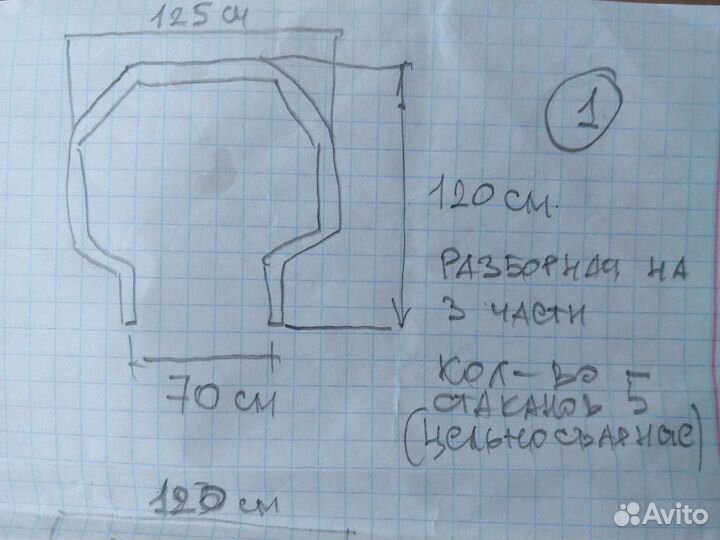 125 см
1
120 см.
РАЗБОРНАЯ НА
3 ЧАСТИ
КОЛ-ВО
СТАКАНОВ 5
(ЦЕЛЬНОСВАРНЫЕ)
70 см
120 см
Avito